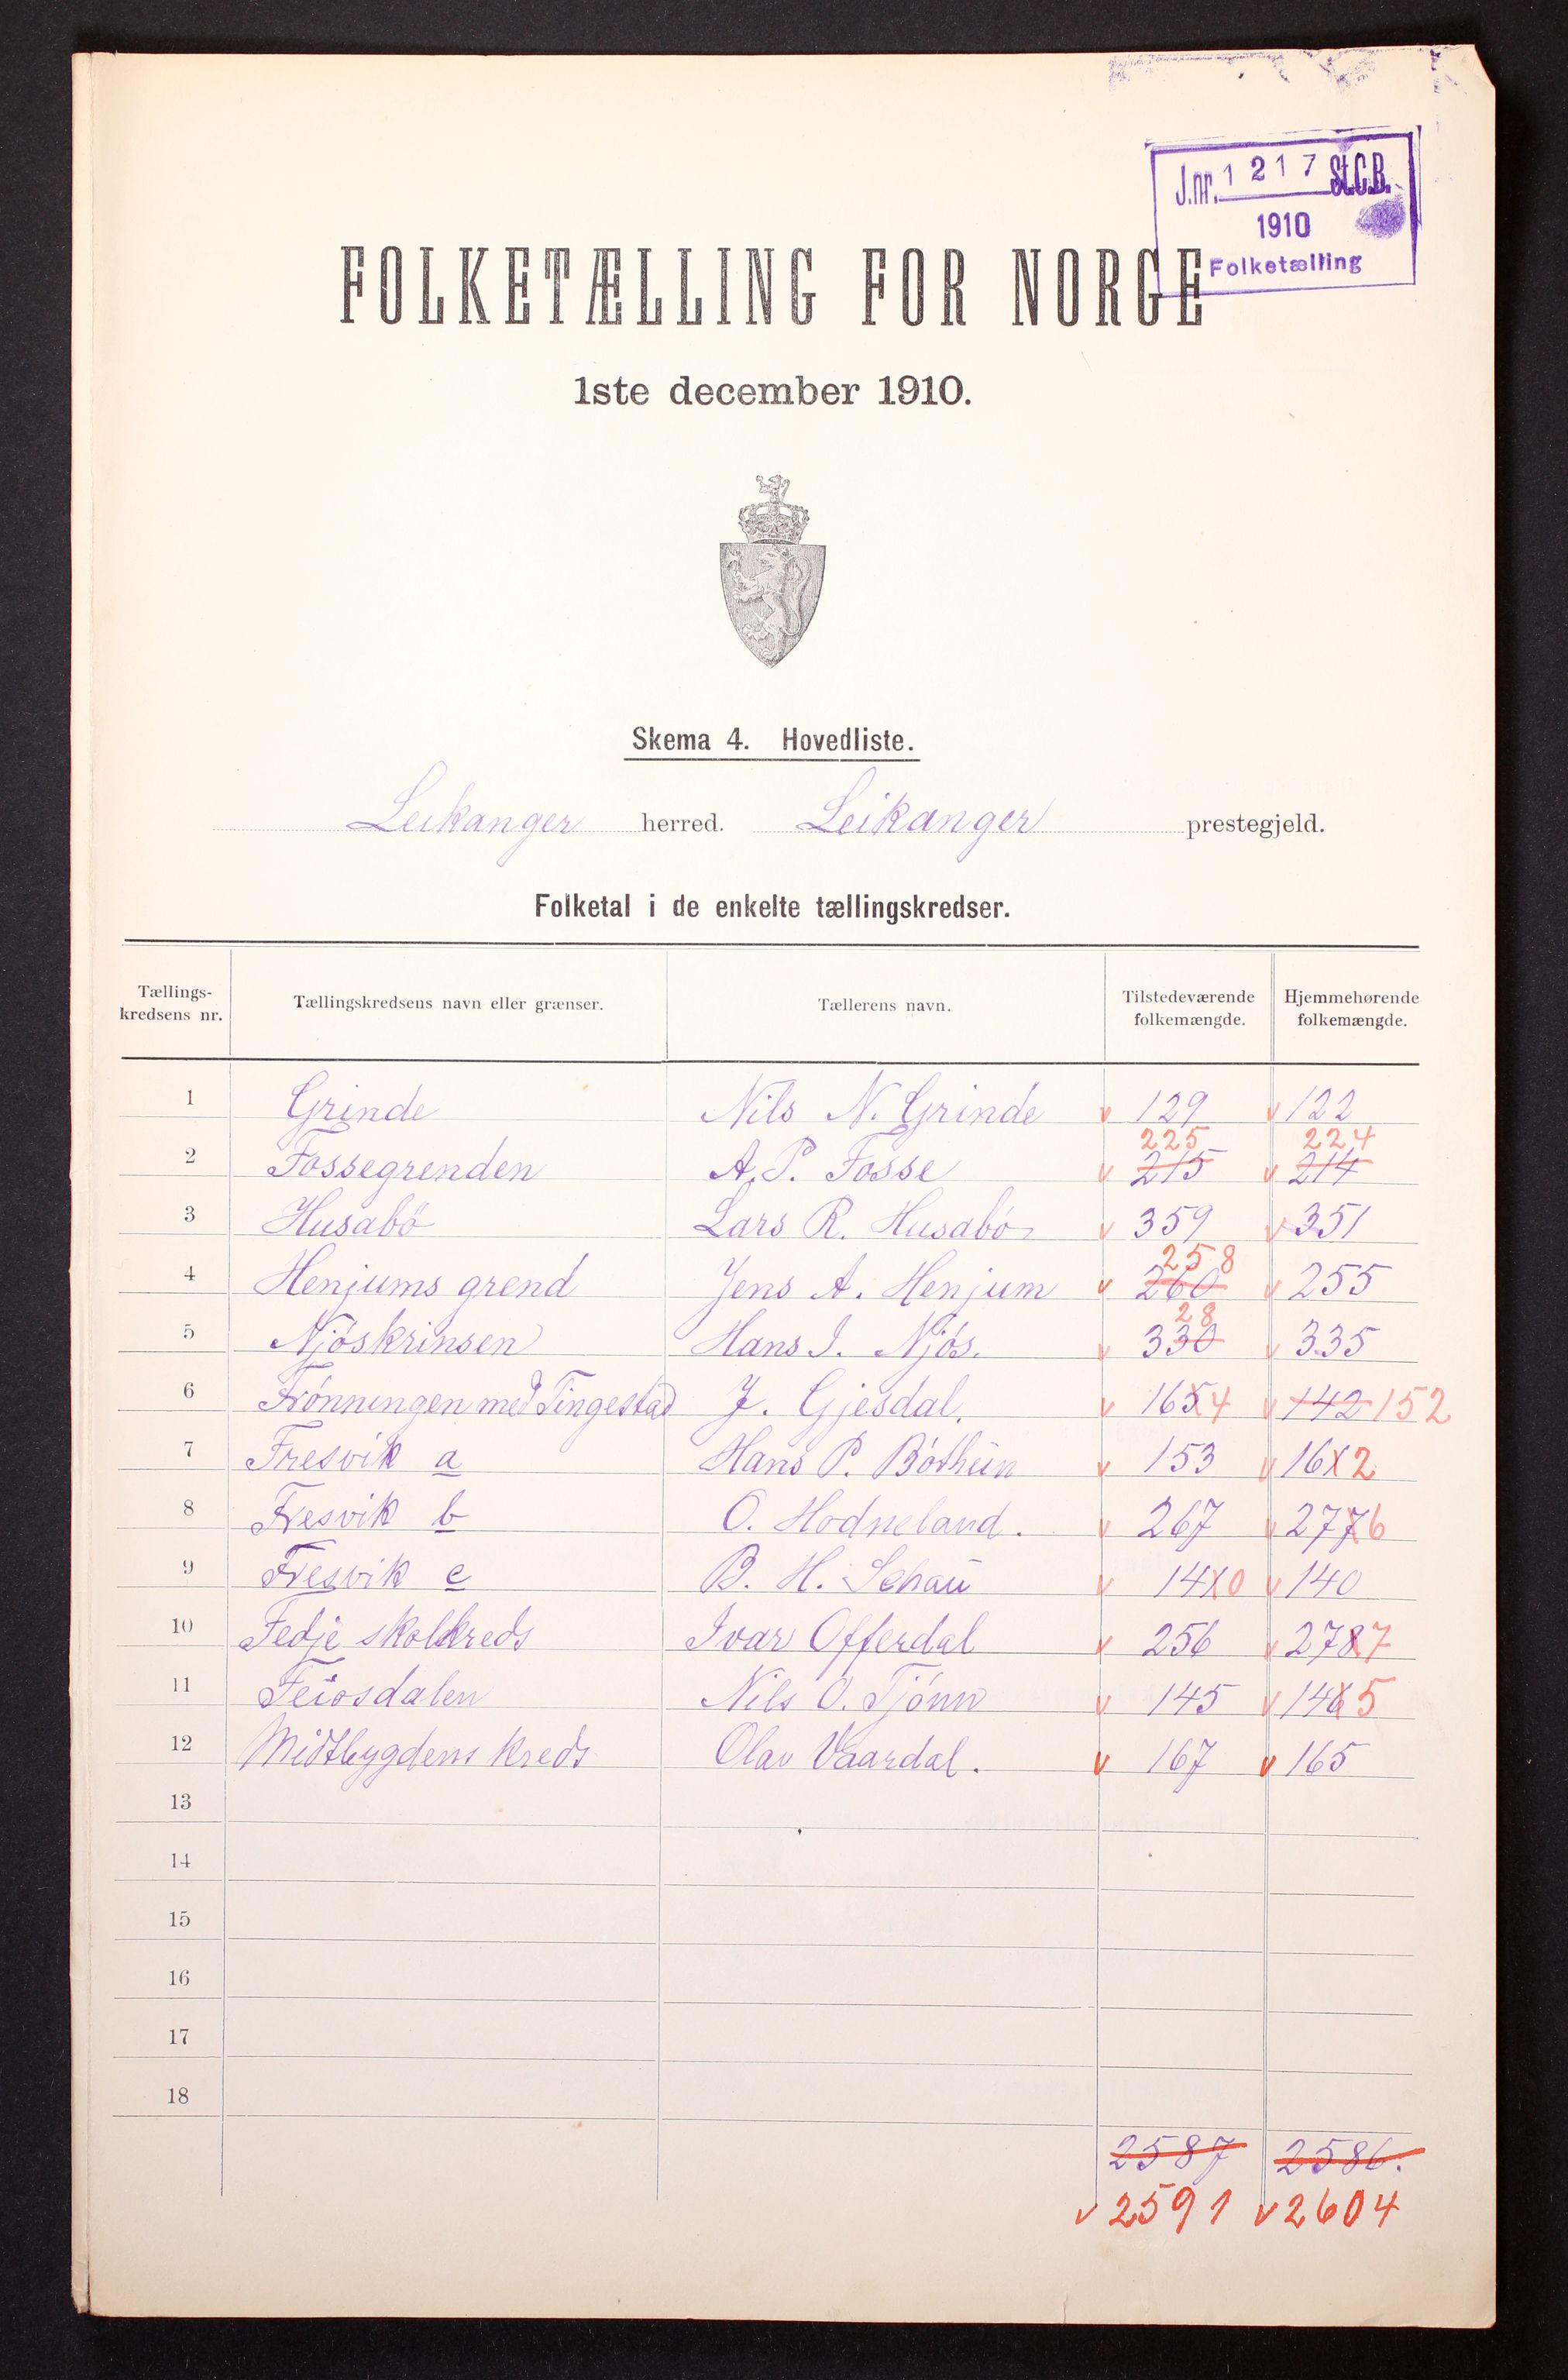 J.nr. 1217 St.C.B.
1910
Folketælling
FOLKETÆLLING FOR NORGE
1ste december 1910.
Skema 4. Hovedliste.
Leikanger herred. Leikanger prestegjeld.
Folketal i de enkelte tællingskredser.
Tællings-kredsens nr. Tællingskredsens navn eller grænser. Tællerens navn. Tilstedeværende folkemængde. Hjemmehørende folkemængde.
1 Grinde Nils N. Grinde v 129 v 122
225 224
2 Fossegrenden A. P. Fosse v 215 v 214
3 Husabö Lars R. Husabö v 359 v 351
258
4 Henjums grend Jens A. Henjum v 260 v 255
28
5 Njöskrinsen Hans I. Njös. v 330 v 335
6 Frönningen med Tingestad J. Gjesdal. v 165 4 v 142 152
7 Fresvik a Hans P. Böthun v 153 v 16 2
8 Fresvik b O. Hodneland. v 267 v 277 6
9 Fresvik c B. H. Schau v 141 0 v 140
10 Fedje skolekreds Ivar Offerdal v 256 v 278 7
11 Feiosdalen Nils O. Tjönn v 145 v 146 5
12 Midtbygdens kreds Olav Vaardal. v 167 v 165
13
14
15
16
17
18
2587 2586.
v 2591 v 2604